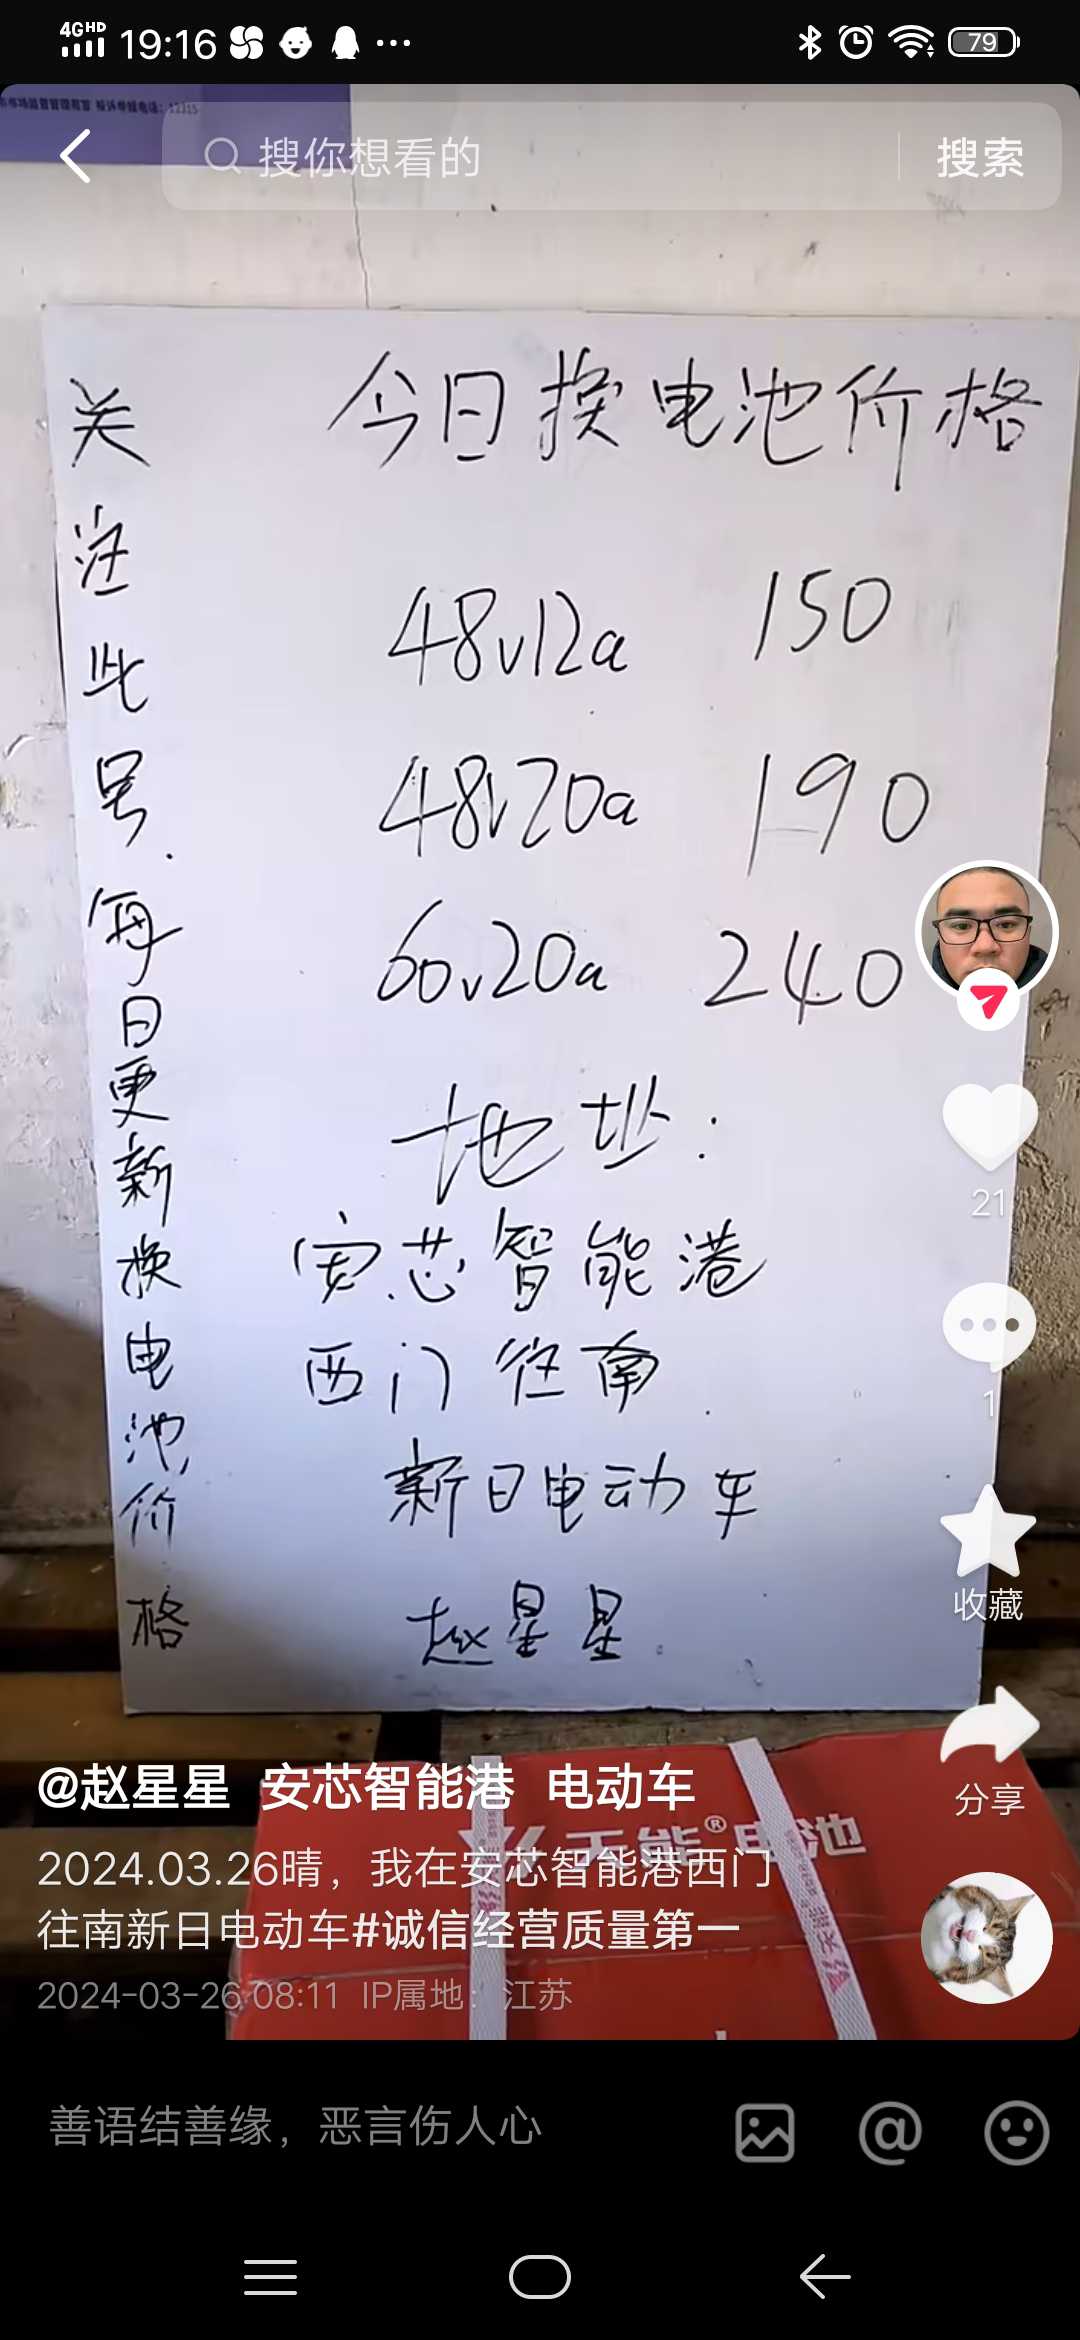 4GHD 19:16 79
市市场监督管理局官 投诉举报电话：12315
搜你想看的 搜索
今日换电池价格
48v12a 150
48v20a 190
60v20a 240
地址：
安芯智能港
西门往南
新日电动车
赵星星
关注此号.每日更新换电池价格
21
1
收藏
分享
天能®电池
@赵星星 安芯智能港 电动车
2024.03.26晴，我在安芯智能港西门
往南新日电动车#诚信经营质量第一
2024-03-26 08:11 IP属地：江苏
善语结善缘，恶言伤人心